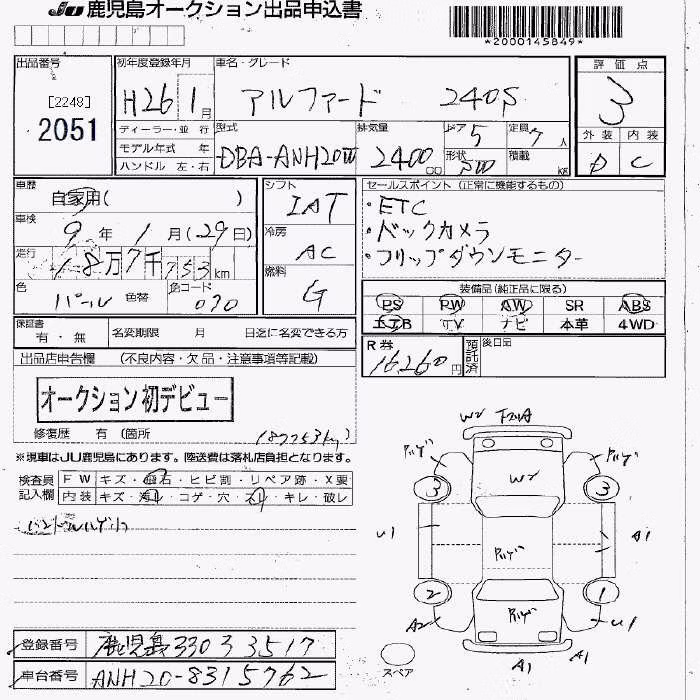 JU 鹿児島オークション出品申込書
*2000145849*
出品番号
[2248]
2051
初年度登録年月
H26 1月
車名・グレード
アルファード 240S
評価点
3
外装 内装
D C
ディーラー・並行
モデル年式 年
ハンドル 左・右
型式
DBA-ANH20W
排気量
2400 cc
ドア 5
定員 7人
形状 SW
積載 kg
車歴
自家用( )
車検
9年 1月(29日)
走行
18万7千753km
色 パール 色替
色コード 070
シフト
IAT
冷房
AC
燃料
G
セールスポイント(正常に機能するもの)
・ETC
・バックカメラ
・フリップダウンモニター
装備品(純正品に限る)
PS PW AW SR ABS
エアB TV ナビ 本革 4WD
保証書
有・無
名変期限 月 日迄に名変できる方
R券
16,260円
預託済
後日品
出品店申告欄 (不良内容・欠品・注意事項等記載)
オークション初デビュー
修復歴 有 (箇所 187753km)
※現車はJU鹿児島にあります。陸送費は落札店負担となります。
検査員記入欄
FW キズ・飛石・ヒビ割・リペア跡・X要
内装 キズ・汚れ・コゲ・穴・スレ・キレ・破レ
ハンドルハゲ
W2
W2
3
3
U1
A1
2
1
A2
U1
A1
A1
スペア
登録番号 鹿児島 330 ３ 3517
車台番号 ANH20-8315762